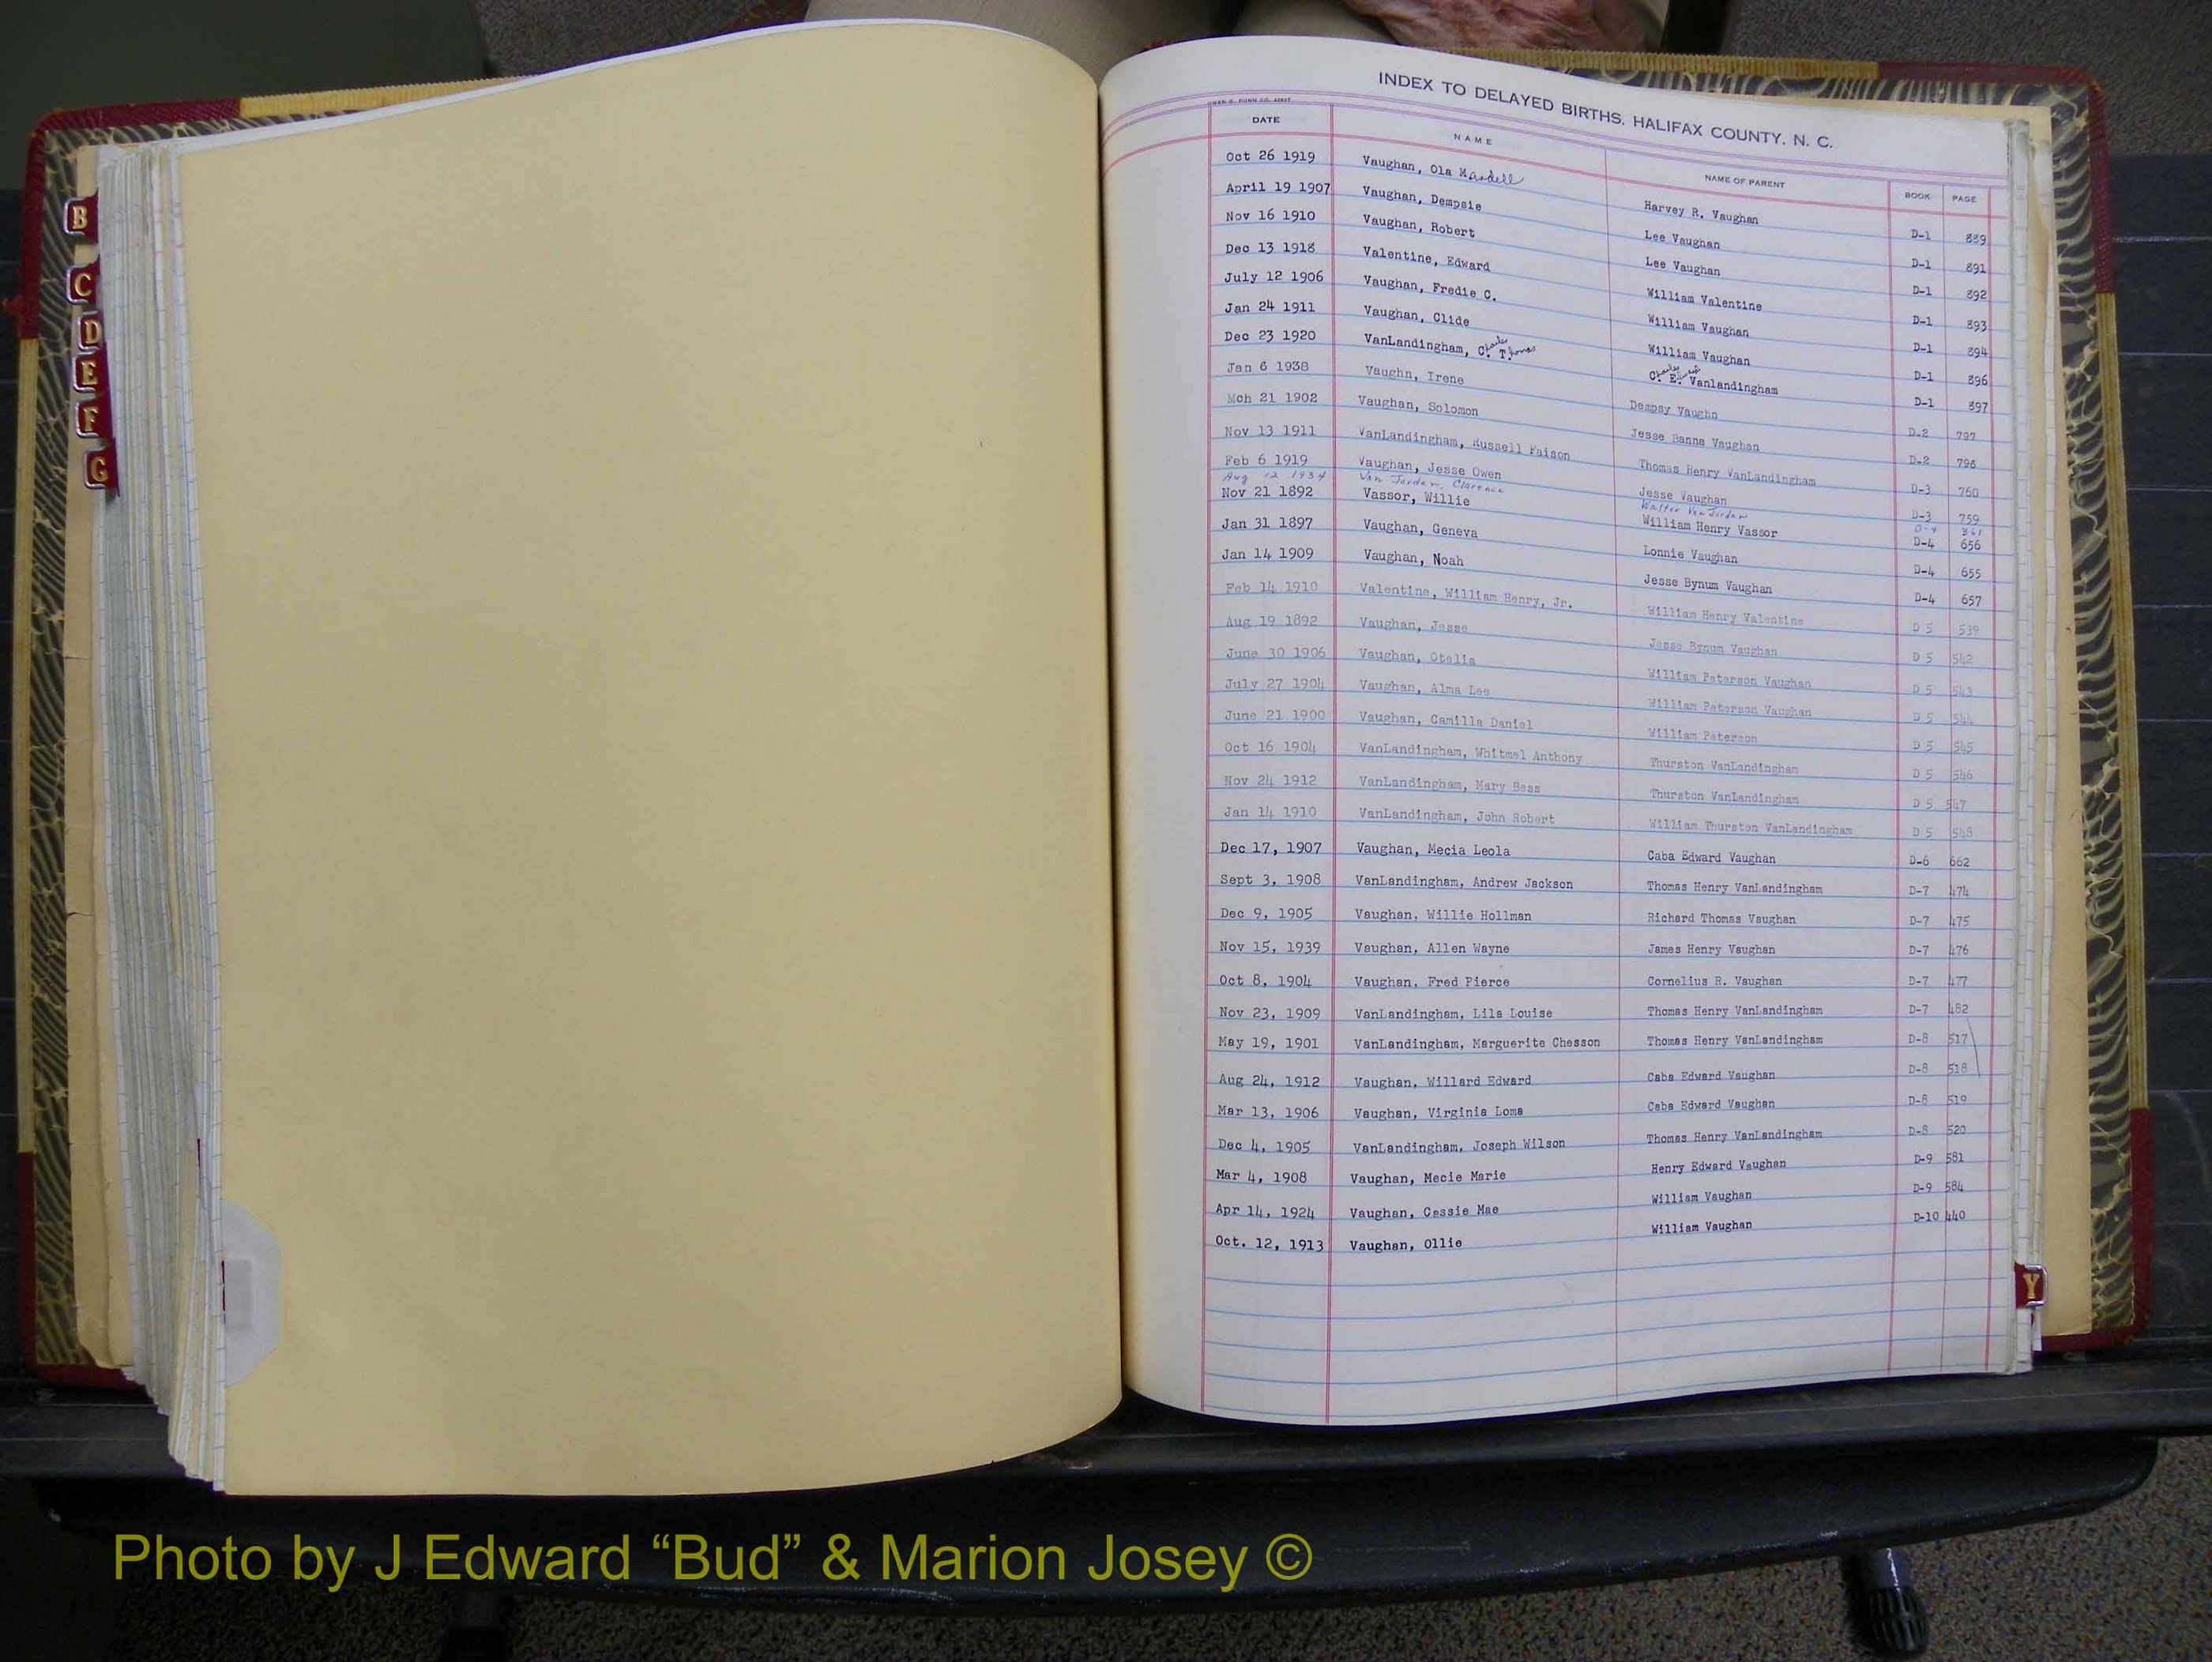 INDEX TO DELAYED BIRTHS, HALIFAX COUNTY, N. C.
DATE NAME NAME OF PARENT BOOK PAGE
Oct 26 1919 Vaughan, Ola Mardell Harvey R. Vaughan D-1 889
April 19 1907 Vaughan, Dempsie Lee Vaughan D-1 891
Nov 16 1910 Vaughan, Robert Lee Vaughan D-1 892
Dec 13 1918 Valentine, Edward William Valentine D-1 893
July 12 1906 Vaughan, Fredie C. William Vaughan D-1 894
Jan 24 1911 Vaughan, Clide William Vaughan D-1 896
Dec 23 1920 VanLandingham, Charles Thomas C. E. Vanlandingham D-1 897
Jan 6 1938 Vaughn, Irene Dempsy Vaughn D-2 797
Mch 21 1902 Vaughan, Solomon Jesse Banna Vaughan D-2 796
Nov 13 1911 VanLandingham, Russell Faison Thomas Henry VanLandingham D-3 760
Feb 6 1919 Vaughan, Jesse Owen Jesse Vaughan D-3 759
Aug 12 1934 Van Jordan, Clarence Walter Van Jordan D-4 361
Nov 21 1892 Vassor, Willie William Henry Vassor D-4 656
Jan 31 1897 Vaughan, Geneva Lonnie Vaughan D-4 655
Jan 14 1909 Vaughan, Noah Jesse Bynum Vaughan D-4 657
Feb 14 1910 Valentine, William Henry, Jr. William Henry Valentine D 5 539
Aug 19 1892 Vaughan, Jesse Jesse Bynum Vaughan D 5 542
June 30 1906 Vaughan, Otelia William Peterson Vaughan D 5 543
July 27 1904 Vaughan, Alma Lee William Peterson Vaughan D 5 544
June 21 1900 Vaughan, Camilla Daniel William Peterson D 5 545
Oct 16 1904 VanLandingham, Whitmel Anthony Thurston VanLandingham D 5 546
Nov 24 1912 VanLandingham, Mary Bess Thurston VanLandingham D 5 547
Jan 14 1910 VanLandingham, John Robert William Thurston VanLandingham D 5 548
Dec 17, 1907 Vaughan, Mecia Leola Caba Edward Vaughan D-6 662
Sept 3, 1908 VanLandingham, Andrew Jackson Thomas Henry VanLandingham D-7 474
Dec 9, 1905 Vaughan, Willie Hollman Richard Thomas Vaughan D-7 475
Nov 15, 1939 Vaughan, Allen Wayne James Henry Vaughan D-7 476
Oct 8, 1904 Vaughan, Fred Pierce Cornelius R. Vaughan D-7 477
Nov 23, 1909 VanLandingham, Lila Louise Thomas Henry VanLandingham D-7 482
May 19, 1901 VanLandingham, Marguerite Chesson Thomas Henry VanLandingham D-8 517
Aug 24, 1912 Vaughan, Willard Edward Caba Edward Vaughan D-8 518
Mar 13, 1906 Vaughan, Virginia Loma Caba Edward Vaughan D-8 519
Dec 4, 1905 VanLandingham, Joseph Wilson Thomas Henry VanLandingham D-8 520
Mar 4, 1908 Vaughan, Mecie Marie Henry Edward Vaughan D-9 581
Apr 14, 1924 Vaughan, Cassie Mae William Vaughan D-9 584
Oct. 12, 1913 Vaughan, Ollie William Vaughan D-10 440
B
C
D
E
F
G
Y
Photo by J Edward “Bud” & Marion Josey ©